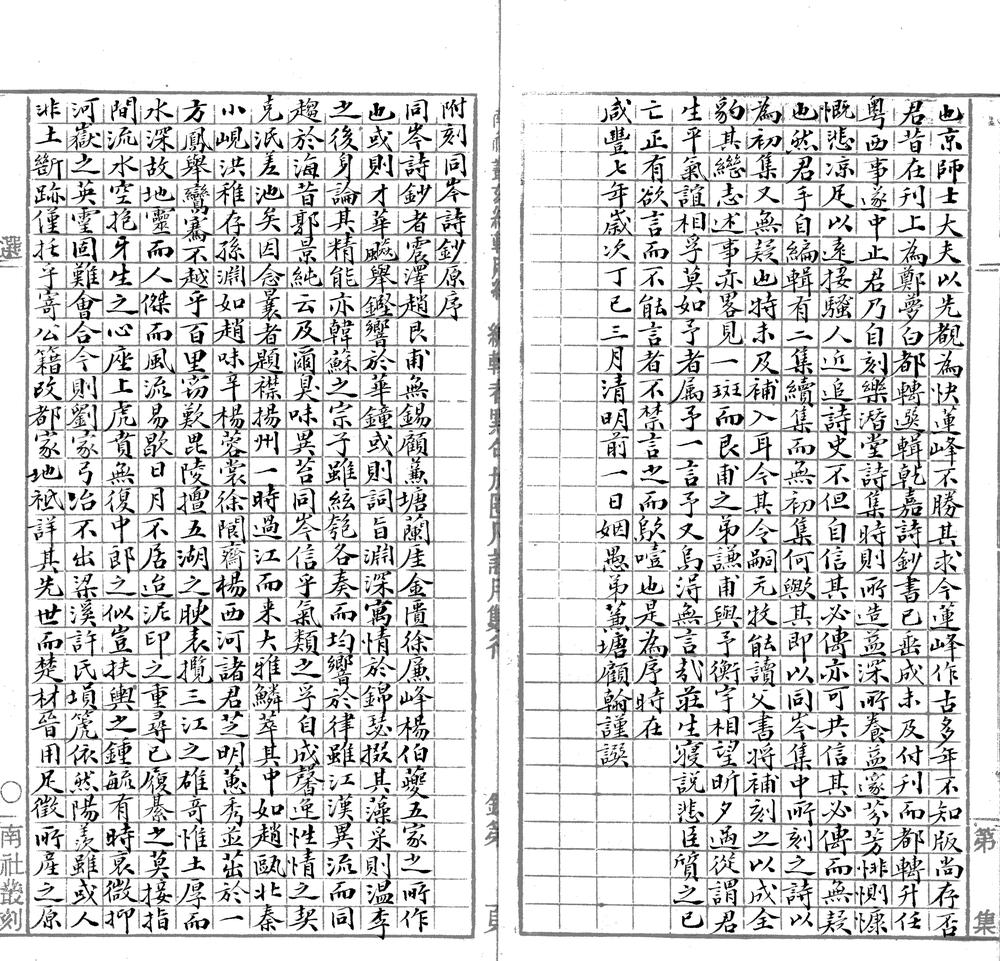 也京師士大夫以先覩為快蓮峰不勝其求今蓮峰作古多年不知版尚存否
君昔在刊上為鄭夢白都轉選輯乾嘉詩鈔書已垂成未及付刊而都轉升任
粤西事遂中止君乃自刻樂潛堂詩集時則所造益深所養益邃芬芳悱惻慷
慨悲涼足以遠接騷人近追詩史不但自信其必傳亦可共信其必傳而無疑
也然君手自編輯有二集續集而無初集何歟其即以同岑集中所刻之詩以
為初集又無疑也特未及補入耳今其令嗣元牧能讀父書將補刻之以成全
豹其繼志述事亦畧見一斑而艮甫之弟謙甫與予衡宇相望昕夕過從謂君
生平氣誼相孚莫如予者属予一言予又烏得無言哉莊生寢說悲臣質之已
亡正有欲言而不能言者不禁言之而歔嘻也是為序時在
咸豐七年歲次丁巳三月清明前一日姻愚弟蒹塘顧翰謹譔
第
集
附刻同岑詩鈔原序
同岑詩鈔者震澤趙艮甫無錫顧蒹塘蘭厓金匱徐廉峰楊伯夔五家之所作
也或則才華飈舉鏗響於華鐘或則詞旨淵深寓情於錦瑟掇其藻采則温李
之後身論其精能亦韓蘇之宗子雖絃匏各奏而均響於律雖江漢異流而同
趨於海昔郭景純云及爾臭味異苔同岑信乎氣類之孚自成馨逸性情之契
克泯差池矣因念曩者題襟揚州一時過江而来大雅鱗萃其中如趙甌北秦
小峴洪稚存孫淵如趙味辛楊蓉裳徐閬齋楊西河諸君芝明蕙秀並茁於一
方鳳舉鸞騫不越乎百里竊歎毘陵擅五湖之映表攬三江之雄竒惟土厚而
水深故地靈而人傑而風流易歇日月不居迨泥印之重尋已履綦之莫接指
間流水空抱牙生之心座上虎賁無復中郎之似豈扶輿之鍾毓有時衰微抑
河嶽之英霊固難會合今則劉家弓冶不出梁溪許氏塤篪依然陽羨雖或人
非土斷跡僅托乎寄公籍改都家地祗詳其先世而楚材晉用足徵所產之原
選
○
南社叢刻